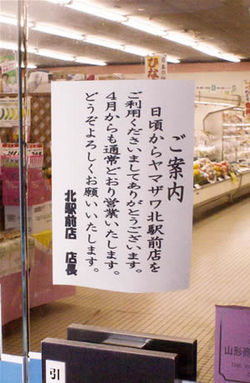 ご案内
日頃からヤマザワ北駅前店を
ご利用くださいましてありがとうございます。
4月からも通常どおり営業いたします。
どうぞよろしくお願いいたします。
北駅前店 店長
ひな
引
山形